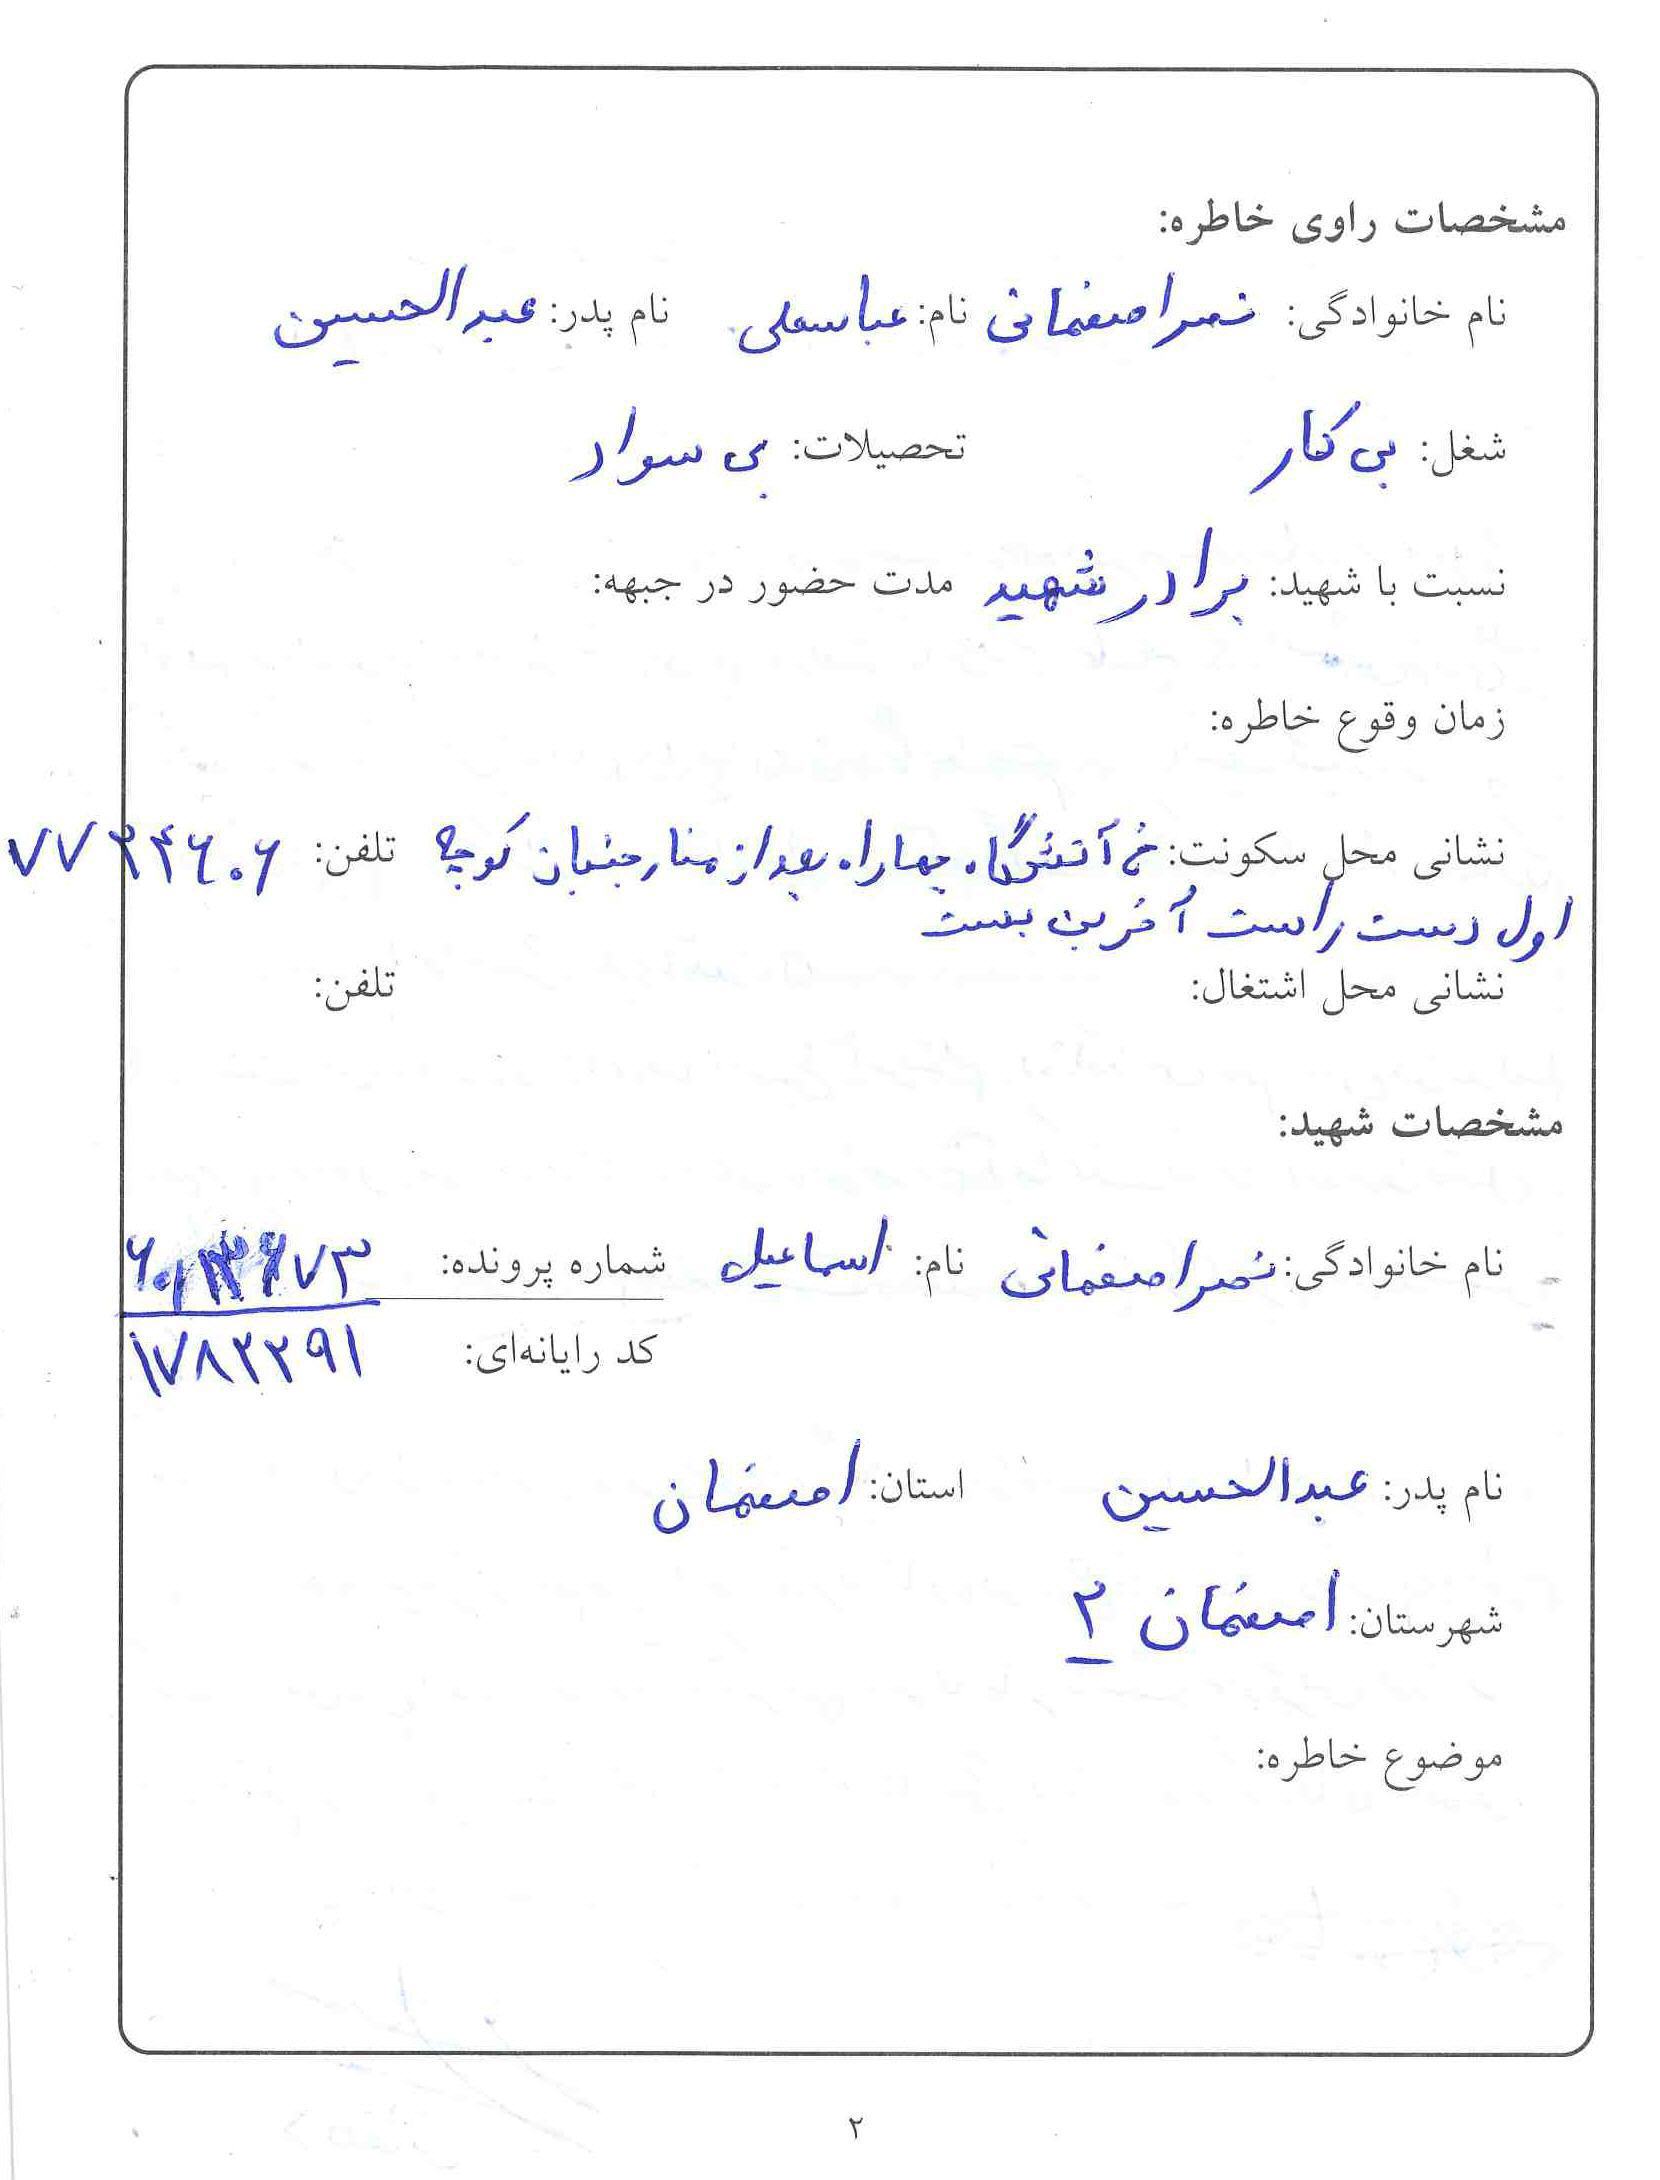 مشخصات راوی خاطره:
نام خانوادگی: نصر اصفهانی نام: عباسعلی نام پدر: عبدالحسین
شغل: بی کار تحصیلات: بی سواد
نسبت با شهید: برادر شهید مدت حضور در جبهه:
زمان وقوع خاطره:
نشانی محل سکونت: خ آتشگاه چهاراه بعد از منار جنبان کوچه تلفن: ۷۷۲۴۶۰۶
اول دست راست آخرین بست
نشانی محل اشتغال: تلفن:
مشخصات شهید:
نام خانوادگی: نصر اصفهانی نام: اسماعیل شماره پرونده:
کد رایانه‌ای: ۱۷۸۲۲۹۱
نام پدر: عبدالحسین استان: اصفهان
شهرستان: اصفهان ۲
موضوع خاطره:
۲